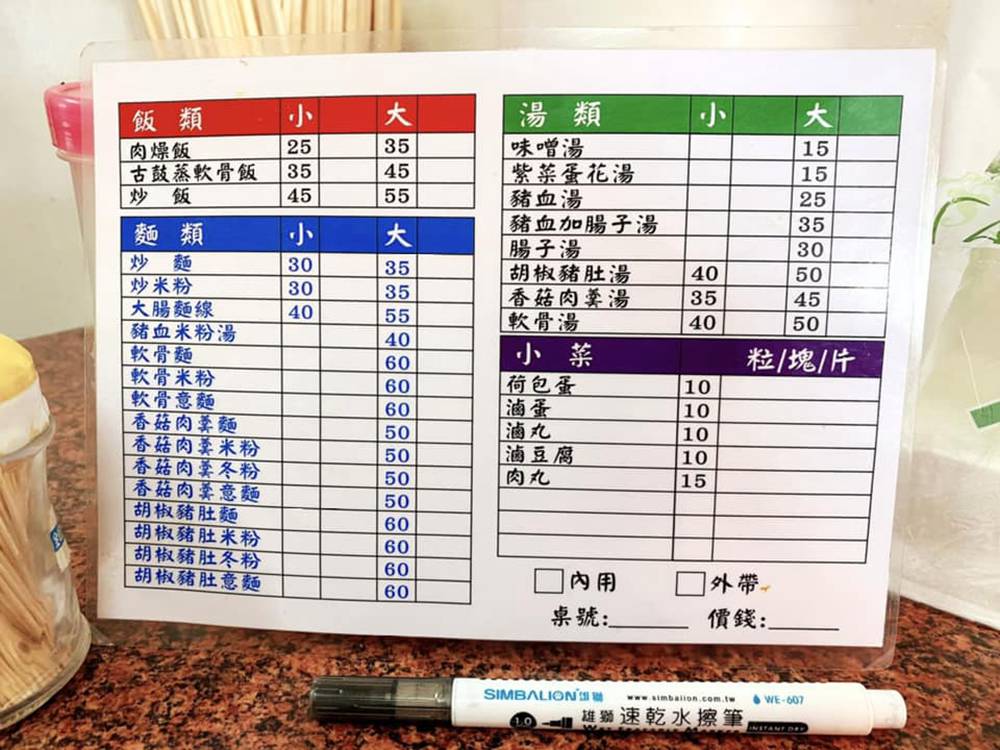 飯 類 小 大
肉燥飯 25 35
古鼓蒸軟骨飯 35 45
炒 飯 45 55
麵 類 小 大
炒 麵 30 35
炒米粉 30 35
大腸麵線 40 55
豬血米粉湯 40
軟骨麵 60
軟骨米粉 60
軟骨意麵 60
香菇肉羹麵 50
香菇肉羹米粉 50
香菇肉羹冬粉 50
香菇肉羹意麵 50
胡椒豬肚麵 60
胡椒豬肚米粉 60
胡椒豬肚冬粉 60
胡椒豬肚意麵 60
湯 類 小 大
味噌湯 15
紫菜蛋花湯 15
豬血湯 25
豬血加腸子湯 35
腸子湯 30
胡椒豬肚湯 40 50
香菇肉羹湯 35 45
軟骨湯 40 50
小 菜 粒/塊/片
荷包蛋 10
滷蛋 10
滷丸 10
滷豆腐 10
肉丸 15
內用 外帶
桌號: 價錢:
SIMBALION 雄獅 www.simbalion.com.tw WE-607
1.0 雄獅 速乾水擦筆 INSTANT DRY